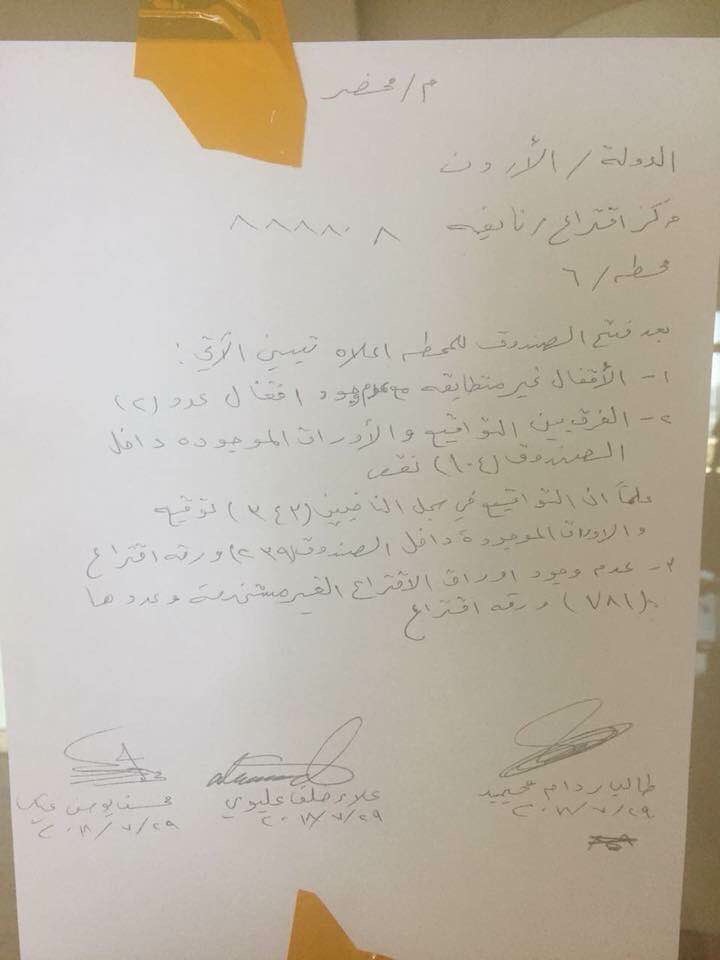 م/ محضر
الدولة / الأردن
مركز اقتراع / نايفه ٨٨٨٨٠٨
محطه / ٦
بعد فتح الصندوق للمحطه اعلاه تبين الآتي :
١- الأقفال غير متطابقه مع وجود اقفال عدد (٢)
٢- الفرق بين التواقيع والأوراق الموجوده داخل
الصندوق (١٠٤) نقص
علماً ان التواقيع في سجل الناخبين (٣٤٣) توقيع
والاوراق الموجودة داخل الصندوق (٢٣٩) ورقه اقتراع
٣- عدم وجود اوراق الاقتراع الغير مستخدمة وعددها
(٧٨١) ورقه اقتراع
طالب ردام
٢٠١٨/٧/٢٩
علاء خلف عليوي
٢٠١٨/٧/٢٩
يونس
٢٠١٨/٧/٢٩